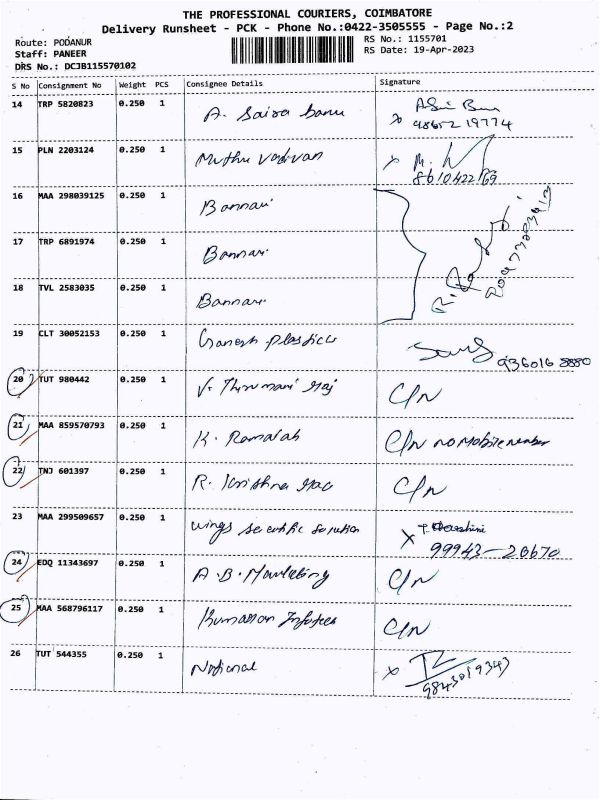 THE PROFESSIONAL COURIERS, COIMBATORE
Delivery Runsheet - PCK - Phone No.:0422-3505555 - Page No.:2
Route: PODANUR RS No.: 1155701
Staff: PANEER RS Date: 19-Apr-2023
DRS No.: DCJB115570102
S No Consignment No Weight PCS Consignee Details Signature
14 TRP 5820823 0.250 1 A. Saira banu
98652 19774
15 PLN 2203124 0.250 1 Muthu vadivan x M.
16 MAA 298039125 0.250 1 Bannari
17 TRP 6891974 0.250 1 Bannari
18 TVL 2583035 0.250 1 Bannari
19 CLT 30052153 0.250 1 Ganesh plastics
936016 8880
20 TUT 980442 0.250 1 V. Thirumani Raj C/N
21 MAA 859570793 0.250 1 K. Ramaiah C/N no mobile number
22 TNJ 601397 0.250 1 R. Krishna Rao C/N
23 MAA 299509657 0.250 1 wings scientific solution x
99943-20670
24 EDQ 11343697 0.250 1 A.B. Marketing C/N
25 MAA 568796117 0.250 1 Kumaran Infotes C/N
26 TUT 544355 0.250 1 National x
9843019343